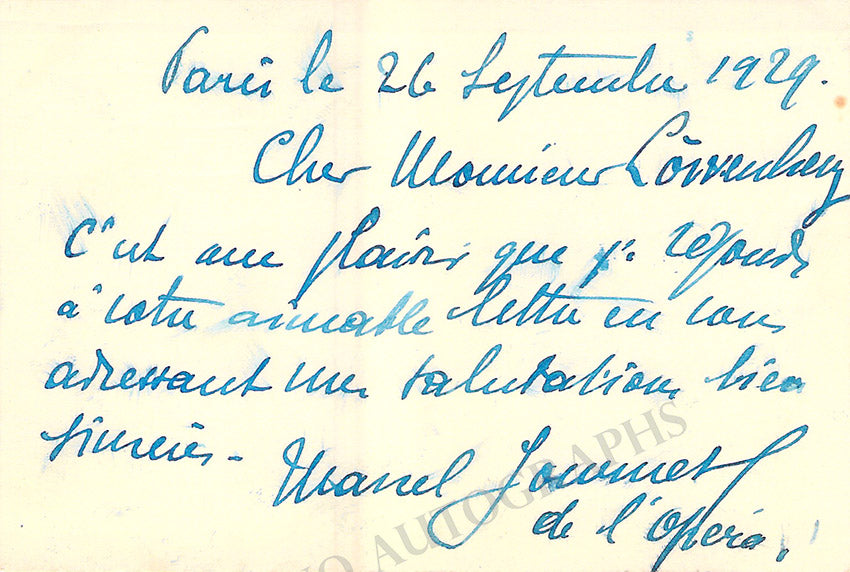 Paris le 26 Septembre 1929.
Cher Monsieur Löwenberg
C'est avec plaisir que je réponds
à votre aimable lettre en vous
adressant mes salutations bien
sincères -
Marcel Journet
de l'Opéra.
AUTOGRAPHS